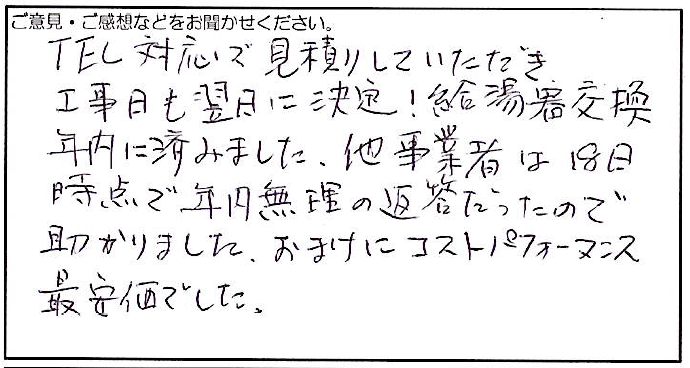 ご意見・ご感想などをお聞かせください。
TEL対応で見積りしていただき
工事日も翌日に決定！給湯器交換
年内に済みました、他事業者は18日
時点で年内無理の返答だったので
助かりました、おまけにコストパフォーマンス
最安価でした。